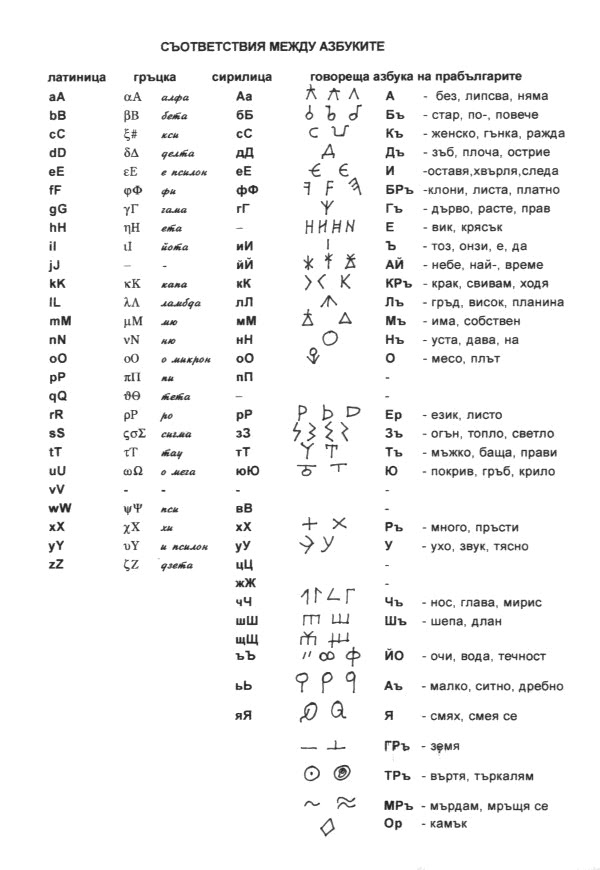 СЪОТВЕТСТВИЯ МЕЖДУ АЗБУКИТЕ
латиница гръцка сирилица говореща азбука на прабългарите
aA αA алфа Аа А - без, липсва, няма
bB βB бета бБ Бъ - стар, по-, повече
cC ξ# кси сС Къ - женско, гънка, ражда
dD δΔ делта дД Дъ - зъб, плоча, острие
eE εE е псилон еЕ И -оставя,хвърля,следа
fF φΦ фи фФ БРъ -клони, листа, платно
gG γΓ гама гГ Гъ - дърво, расте, прав
hH ηH ета – Е - вик, крясък
iI ιI йота иИ Ъ - тоз, онзи, е, да
jJ – - йЙ АЙ - небе, най-, време
kK κK капа кК КРъ - крак, свивам, ходя
lL λΛ ламбда лЛ Лъ - гръд, висок, планина
mM μM мю мМ Мъ - има, собствен
nN νN ню нН Нъ - уста, дава, на
oO οO о микрон оО О - месо, плът
pP πΠ пи пП -
qQ ϑΘ тета – -
rR ρP ро рР Ер - език, листо
sS ςσΣ сигма зЗ Зъ - огън, топло, светло
tT τT тау тТ Тъ - мъжко, баща, прави
uU ωΩ о мега юЮ Ю - покрив, гръб, крило
vV - - - -
wW ψΨ пси вВ -
xX χX хи хХ Ръ - много, пръсти
yY υY и псилон уУ У - ухо, звук, тясно
zZ ζZ дзета цЦ -
жЖ -
чЧ Чъ - нос, глава, мирис
шШ Шъ - шепа, длан
щЩ
ъЪ ЙО - очи, вода, течност
ьЬ Аъ - малко, ситно, дребно
яЯ Я - смях, смея се
ГРъ - земя
ТРъ - въртя, търкалям
МРъ - мърдам, мръщя се
Ор - камък